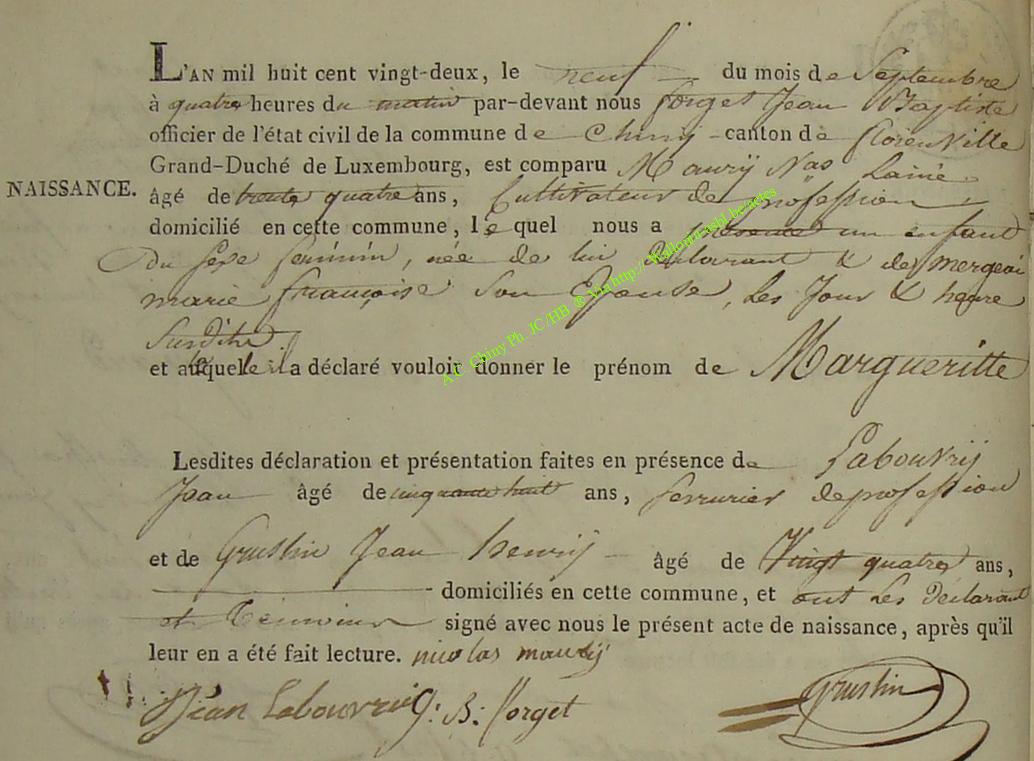 L'AN mil huit cent vingt-deux, le neuf du mois de Septembre
à quatre heures du matin par-devant nous forget Jean Baptiste
officier de l'état civil de la commune de Chiny canton de florenville
Grand-Duché de Luxembourg, est comparu Maurÿ Nas Lainé
NAISSANCE.
âgé de trente quatre ans, Cultivateur de profession
domicilié en cette commune, lequel nous a présenté un enfant
du sexe féminin, née de lui déclarant & de mergeai
marie françoise son Epouse, les Jour & heure
susdite.
et auquel le il a déclaré vouloir donner le prénom de Margueritte
Lesdites déclaration et présentation faites en présence de Labouvrÿ
Jean âgé de cinquante huit ans, serrurier de profession
et de Gruslin Jean henrÿ âgé de Vingt quatre ans,
domiciliés en cette commune, et ont les déclarant
et témoins signé avec nous le présent acte de naissance, après qu'il
leur en a été fait lecture. nicolas maurÿ
Jean Labouvrie J: B: forget Gruslin
A.C. Chiny Ph. JC/HB ® Via http://Wallonia.asbl.be/actes